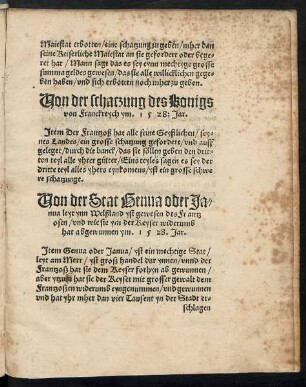 Maiestat erbotten/ eine schatzung zu geben/ mher dan
seine Keiserliche Maiestat an sie gefordert oder bege-
ret hat/ Mann sagt das es sey eynn mechtige grosse
summa geldes gewesen/ das sie alle willicklichen gege-
ben haben/ vnd sich erbotten noch mher zu geben.
Von der schatzung des Konigs
von Franckreych ym. 1528. Jar.
Item Der Frantzoß hat alle seine Geystlichen/ sey-
nes Landes/ ein grosse schatzung gefordert/ vnd auff
gelegt/ durch die banck/ das sie sollen geben den drit-
ten teyl alle yhrer gütter/ Eins teyles sagen es sey der
dritte teyl alles yhres eynkomens/ yst ein grosse schwe
re schatzunge.
Von der Stat Genua oder Ja-
nua leyt ynn Welschland yst gewesen des Frantz
osen/ vnd wie sie yn der Keyser widerumb
hat abgenummen ym. 1528. Jar.
Item Genua oder Janua/ yst ein mechtige Stat/
leyt am Meer/ yst groß handel dar ynnen/ vnnd der
Frantzoß hat sie dem Keyser forhyn ab gewunnen/
aber ytzundt hat sie der Keyser mit grosser gewalt dem
Frantzosen widerumb eyngenummen/ vnd gewunnen
vnd hat yhr mher dan vier Tausent yn der Stadt er-
schlagen